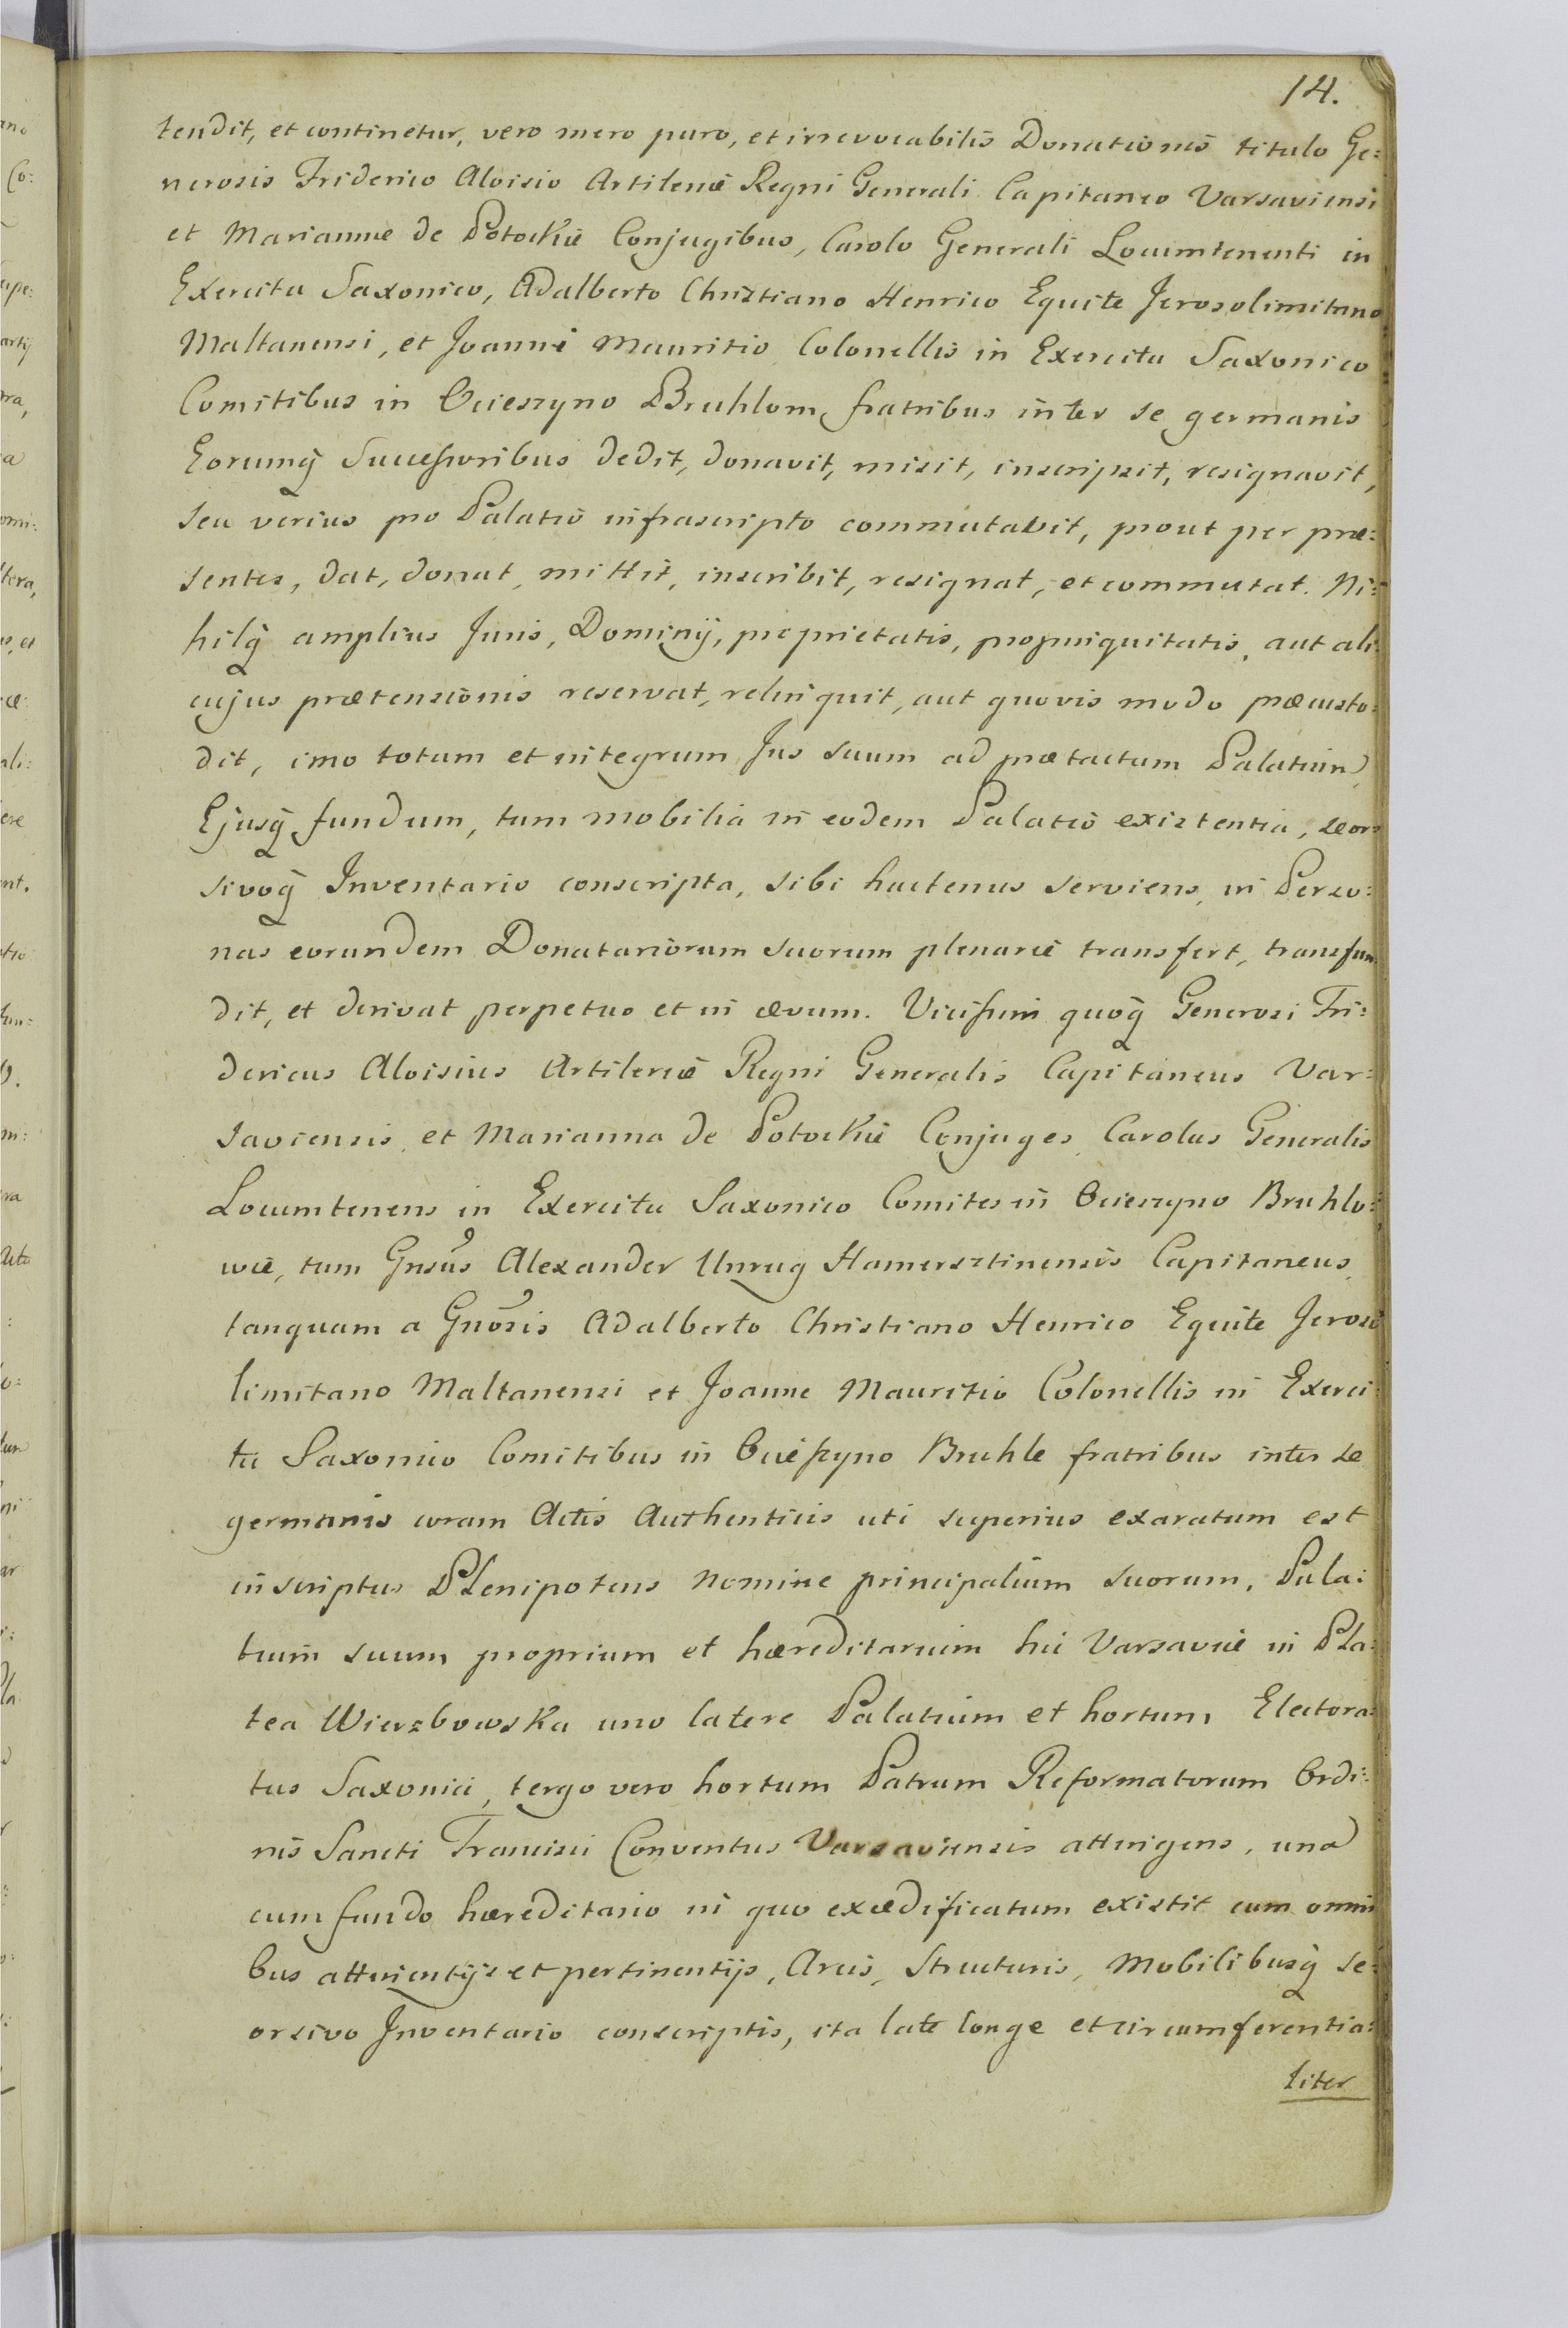 14.
tendit, et continetur, vero mero puro, et irrevocabilis Donationis titulo Ge=
nerosis Friderico Aloisio Artileriæ Regni Generali Capitaneo Varsaviensi
et Mariannæ de Potockie Conjugibus, Carolo Generali Locumtenenti in
Exercitu Saxonico, Adalberto Christiano Henrico Equite Jerosolimitano
Maltanensi, et Joanni Mauritio Colonellis in Exercitu Saxonico
Comitibus in Ocieszyno Bruhlom, fratribus inter se germanis
Eorumq̃ Successoribus dedit, donavit, misit, inscripsit, resignavit,
seu verius pro Palatio infrascripto commutavit, prout per præ=
sentes, dat, donat, mittit, inscribit, resignat, et commutat. Ni=
hilq̃ amplius Juris, Dominij, proprietatis, propinquitatis, aut ali=
cujus prætensionis reservat, relinquit, aut quovis modo præcusto=
dit, imo totum et integrum Jus suum ad prætactum Palatium,
Ejusq̃ fundum, tum mobilia in eodem Palatio existentia, seor=
sivoq̃ Inventario conscripta, sibi hactenus serviens, in Perso=
nas eorundem Donatariorum suorum plenarie transfert, transfun
dit, et derivat perpetuo et in ævum. Vicissim quoq̃ Generosi Fri=
dericus Aloisius Artileriæ Regni Generalis Capitaneus Var=
saviensis, et Marianna de Potockie Conjuges, Carolus Generalis
Locumtenens in Exercitu Saxonico Comites in Ocieszyno Bruhlo=
wie, tum Gnsus Alexander Unrug Hamersztinensis Capitaneus,
tanquam a Gnosis Adalberto Christiano Henrico Equite Jeroso
limitano Maltanensi et Joanne Mauritio Colonellis in Exerci=
tu Saxonico Comitibus in Ocieszyno Bruhle fratribus inter se
germanis coram Actis Authenticis uti superius exaratum est
inscriptus Plenipotens nomine principalium suorum, Pala=
tium suum proprium et hæreditarium hic Varsaviæ in Pla=
tea Wierzbowska uno latere Palatium et hortum Electora=
tus Saxonici, tergo vero hortum Patrum Reformatorum Ordi=
nis Sancti Francisci Conventus Varsaviensis attingens, una
cum fundo hæreditario in quo exædificatum existit cum omni
bus attinentijs et pertinentijs, Areis, Structuris, Mobilibusq̃ se=
orsivo Inventario conscriptis, ita late longe et circumferentia=
liter